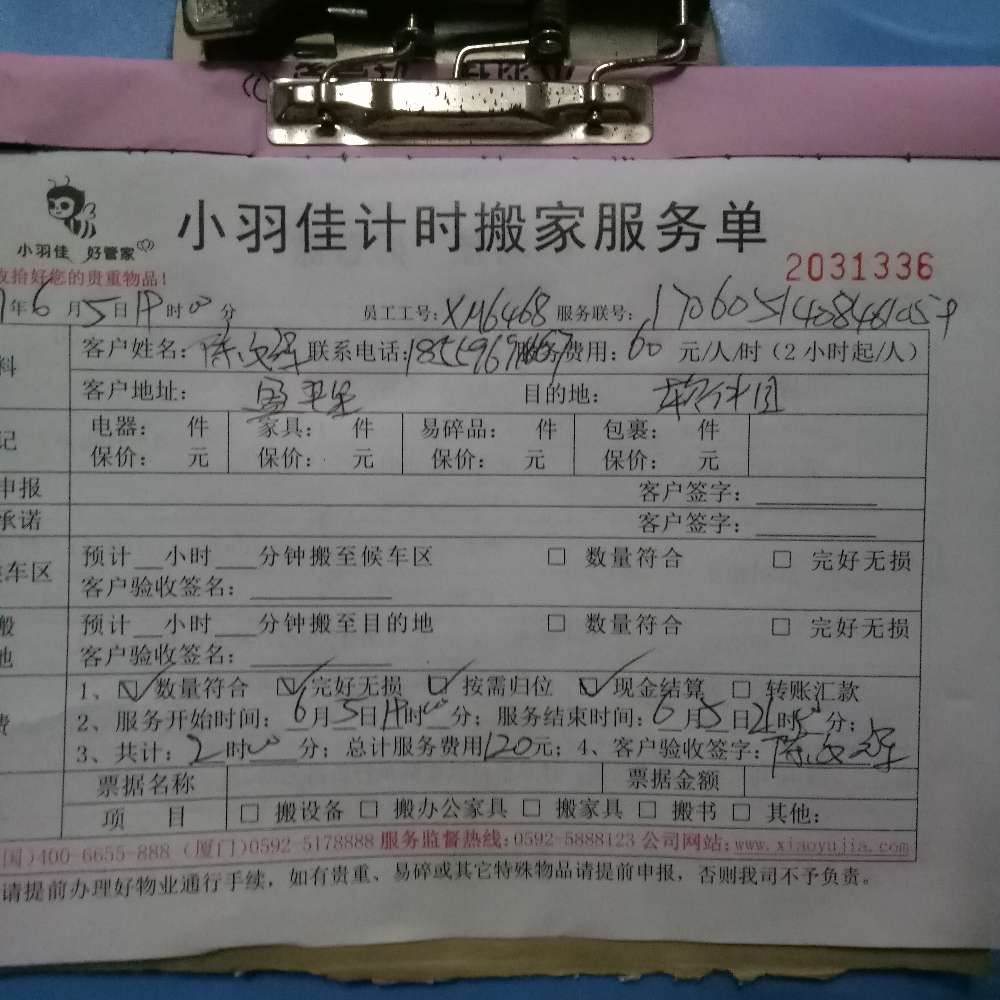 小羽佳 好管家
小羽佳计时搬家服务单
2031336
收拾好您的贵重物品!
年6月5日19时00分 员工工号:XM6468 服务联号:
客户姓名: 联系电话: 服务费用:60元/人/时(2小时起/人)
客户地址: 目的地: 软件园
电器: 件 家具: 件 易碎品: 件 包裹: 件
记
保价: 元 保价: 元 保价: 元 保价: 元
申报 客户签字:
承诺 客户签字:
预计__小时___分钟搬至候车区 □ 数量符合 □ 完好无损
候车区
客户验收签名:
预计__小时___分钟搬至目的地 □ 数量符合 □ 完好无损
客户验收签名:
1、☑数量符合 ☑完好无损 ☑按需归位 ☑现金结算 □ 转账汇款
2、服务开始时间:6月5日19时00分;服务结束时间:6月5日21时00分;
费
3、共计:2时00分;总计服务费用120元;4、客户验收签字:
票据名称 票据金额
项 目 □ 搬设备 □ 搬办公家具 □ 搬家具 □ 搬书 □ 其他:
国)400-6655-888 (厦门)0592-5178888 服务监督热线:0592-5888123 公司网站:www.xiaoyujia.com
请提前办理好物业通行手续,如有贵重、易碎或其它特殊物品请提前申报,否则我司不予负责。